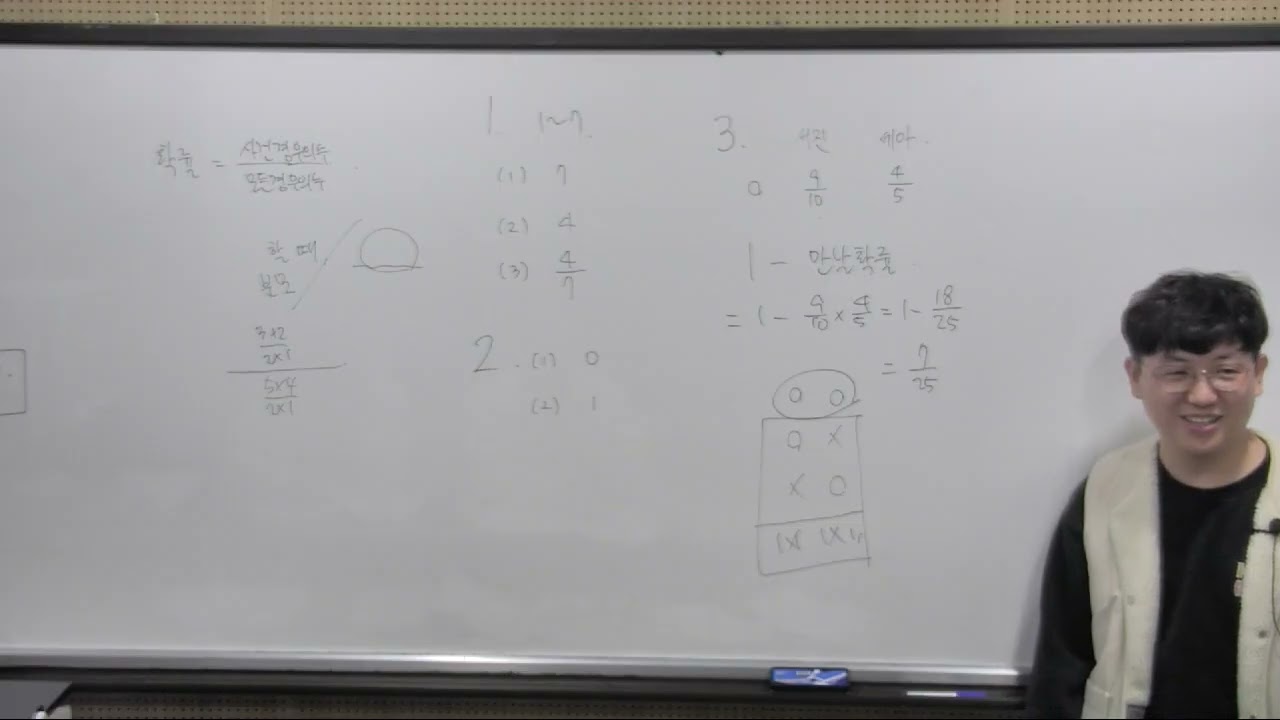 확률 = 사건경우의수 / 모든경우의수
할 때
분모
3×2 / 2×1
5×4 / 2×1
1. 1~7.
(1) 7
(2) 4
(3) 4/7
2. (1) 0
(2) 1
3. 서진 세아.
o 9/10 4/5
1 - 만날확률
= 1 - 9/10 × 4/5 = 1 - 18/25
= 7/25
o o
o x
x o